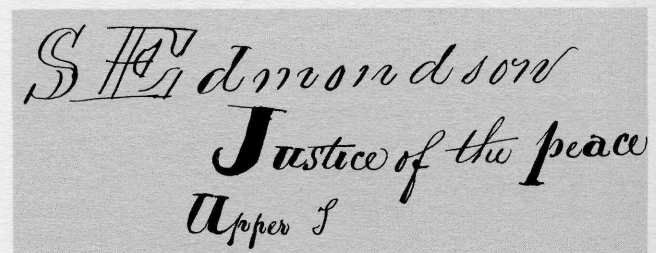 S Edmondson
Justice of the peace
Upper S